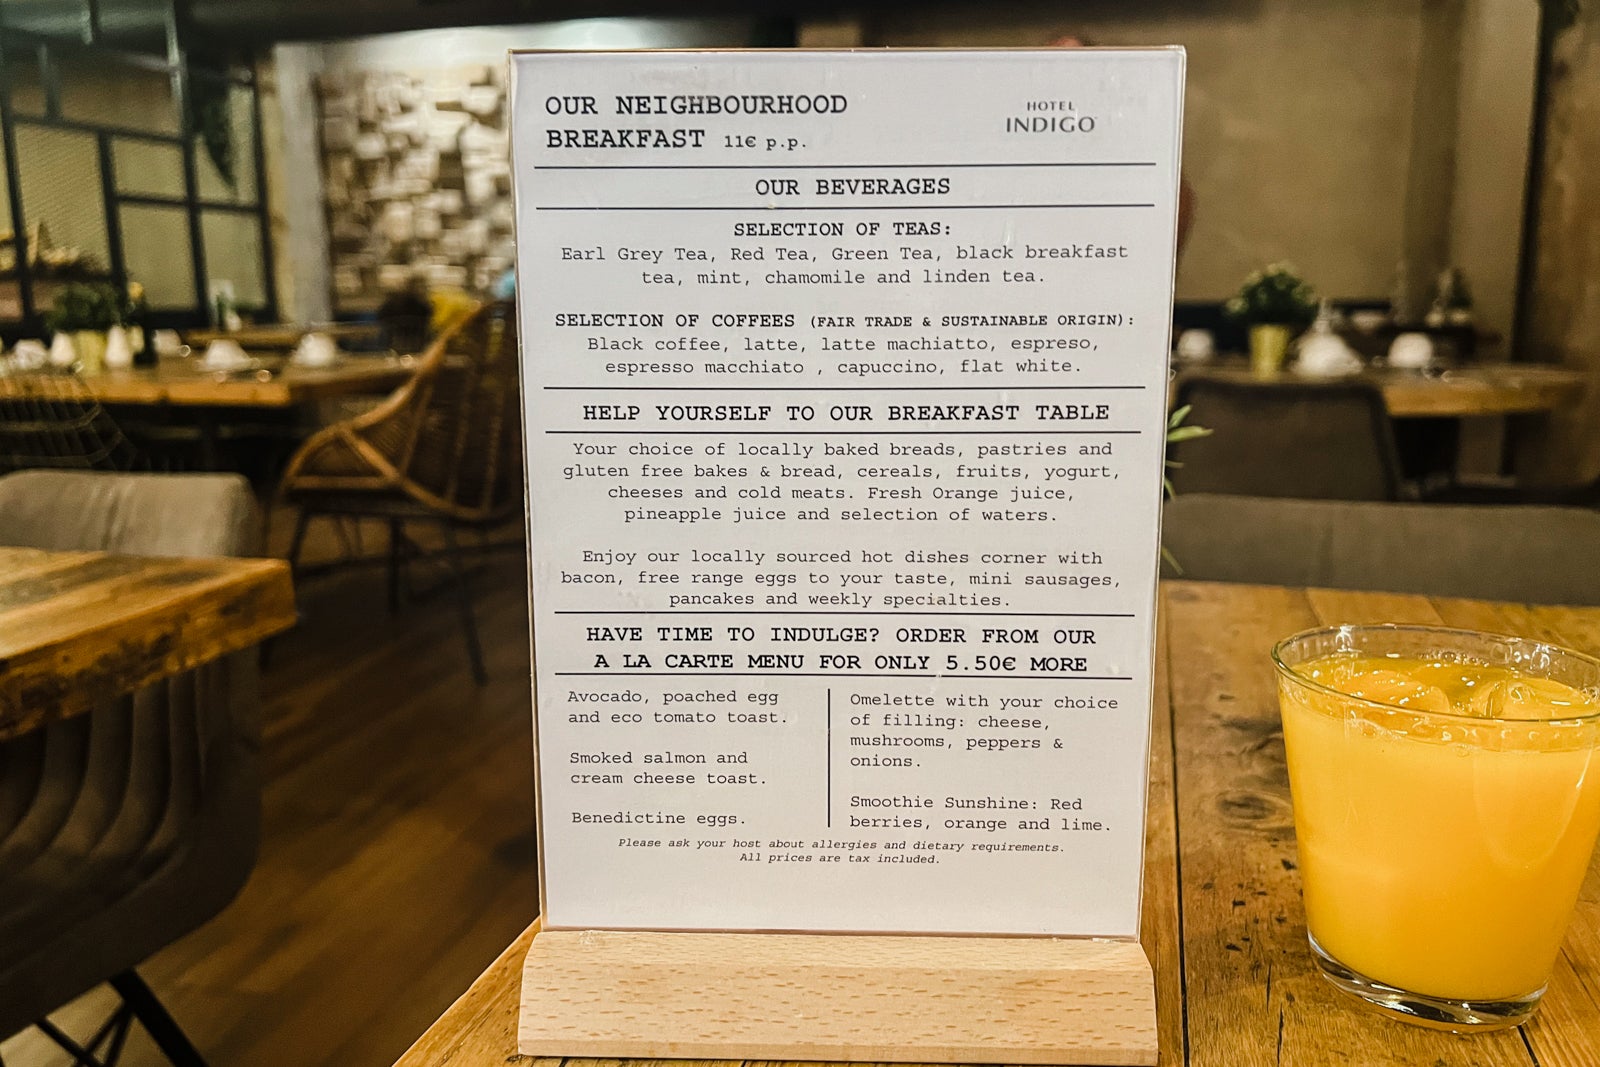 OUR NEIGHBOURHOOD
BREAKFAST 11€ p.p.
HOTEL
INDIGO
OUR BEVERAGES
SELECTION OF TEAS:
Earl Grey Tea, Red Tea, Green Tea, black breakfast
tea, mint, chamomile and linden tea.
SELECTION OF COFFEES (FAIR TRADE & SUSTAINABLE ORIGIN):
Black coffee, latte, latte machiatto, espreso,
espresso macchiato , capuccino, flat white.
HELP YOURSELF TO OUR BREAKFAST TABLE
Your choice of locally baked breads, pastries and
gluten free bakes & bread, cereals, fruits, yogurt,
cheeses and cold meats. Fresh Orange juice,
pineapple juice and selection of waters.
Enjoy our locally sourced hot dishes corner with
bacon, free range eggs to your taste, mini sausages,
pancakes and weekly specialties.
HAVE TIME TO INDULGE? ORDER FROM OUR
A LA CARTE MENU FOR ONLY 5.50€ MORE
Avocado, poached egg
and eco tomato toast.
Smoked salmon and
cream cheese toast.
Benedictine eggs.
Omelette with your choice
of filling: cheese,
mushrooms, peppers &
onions.
Smoothie Sunshine: Red
berries, orange and lime.
Please ask your host about allergies and dietary requirements.
All prices are tax included.